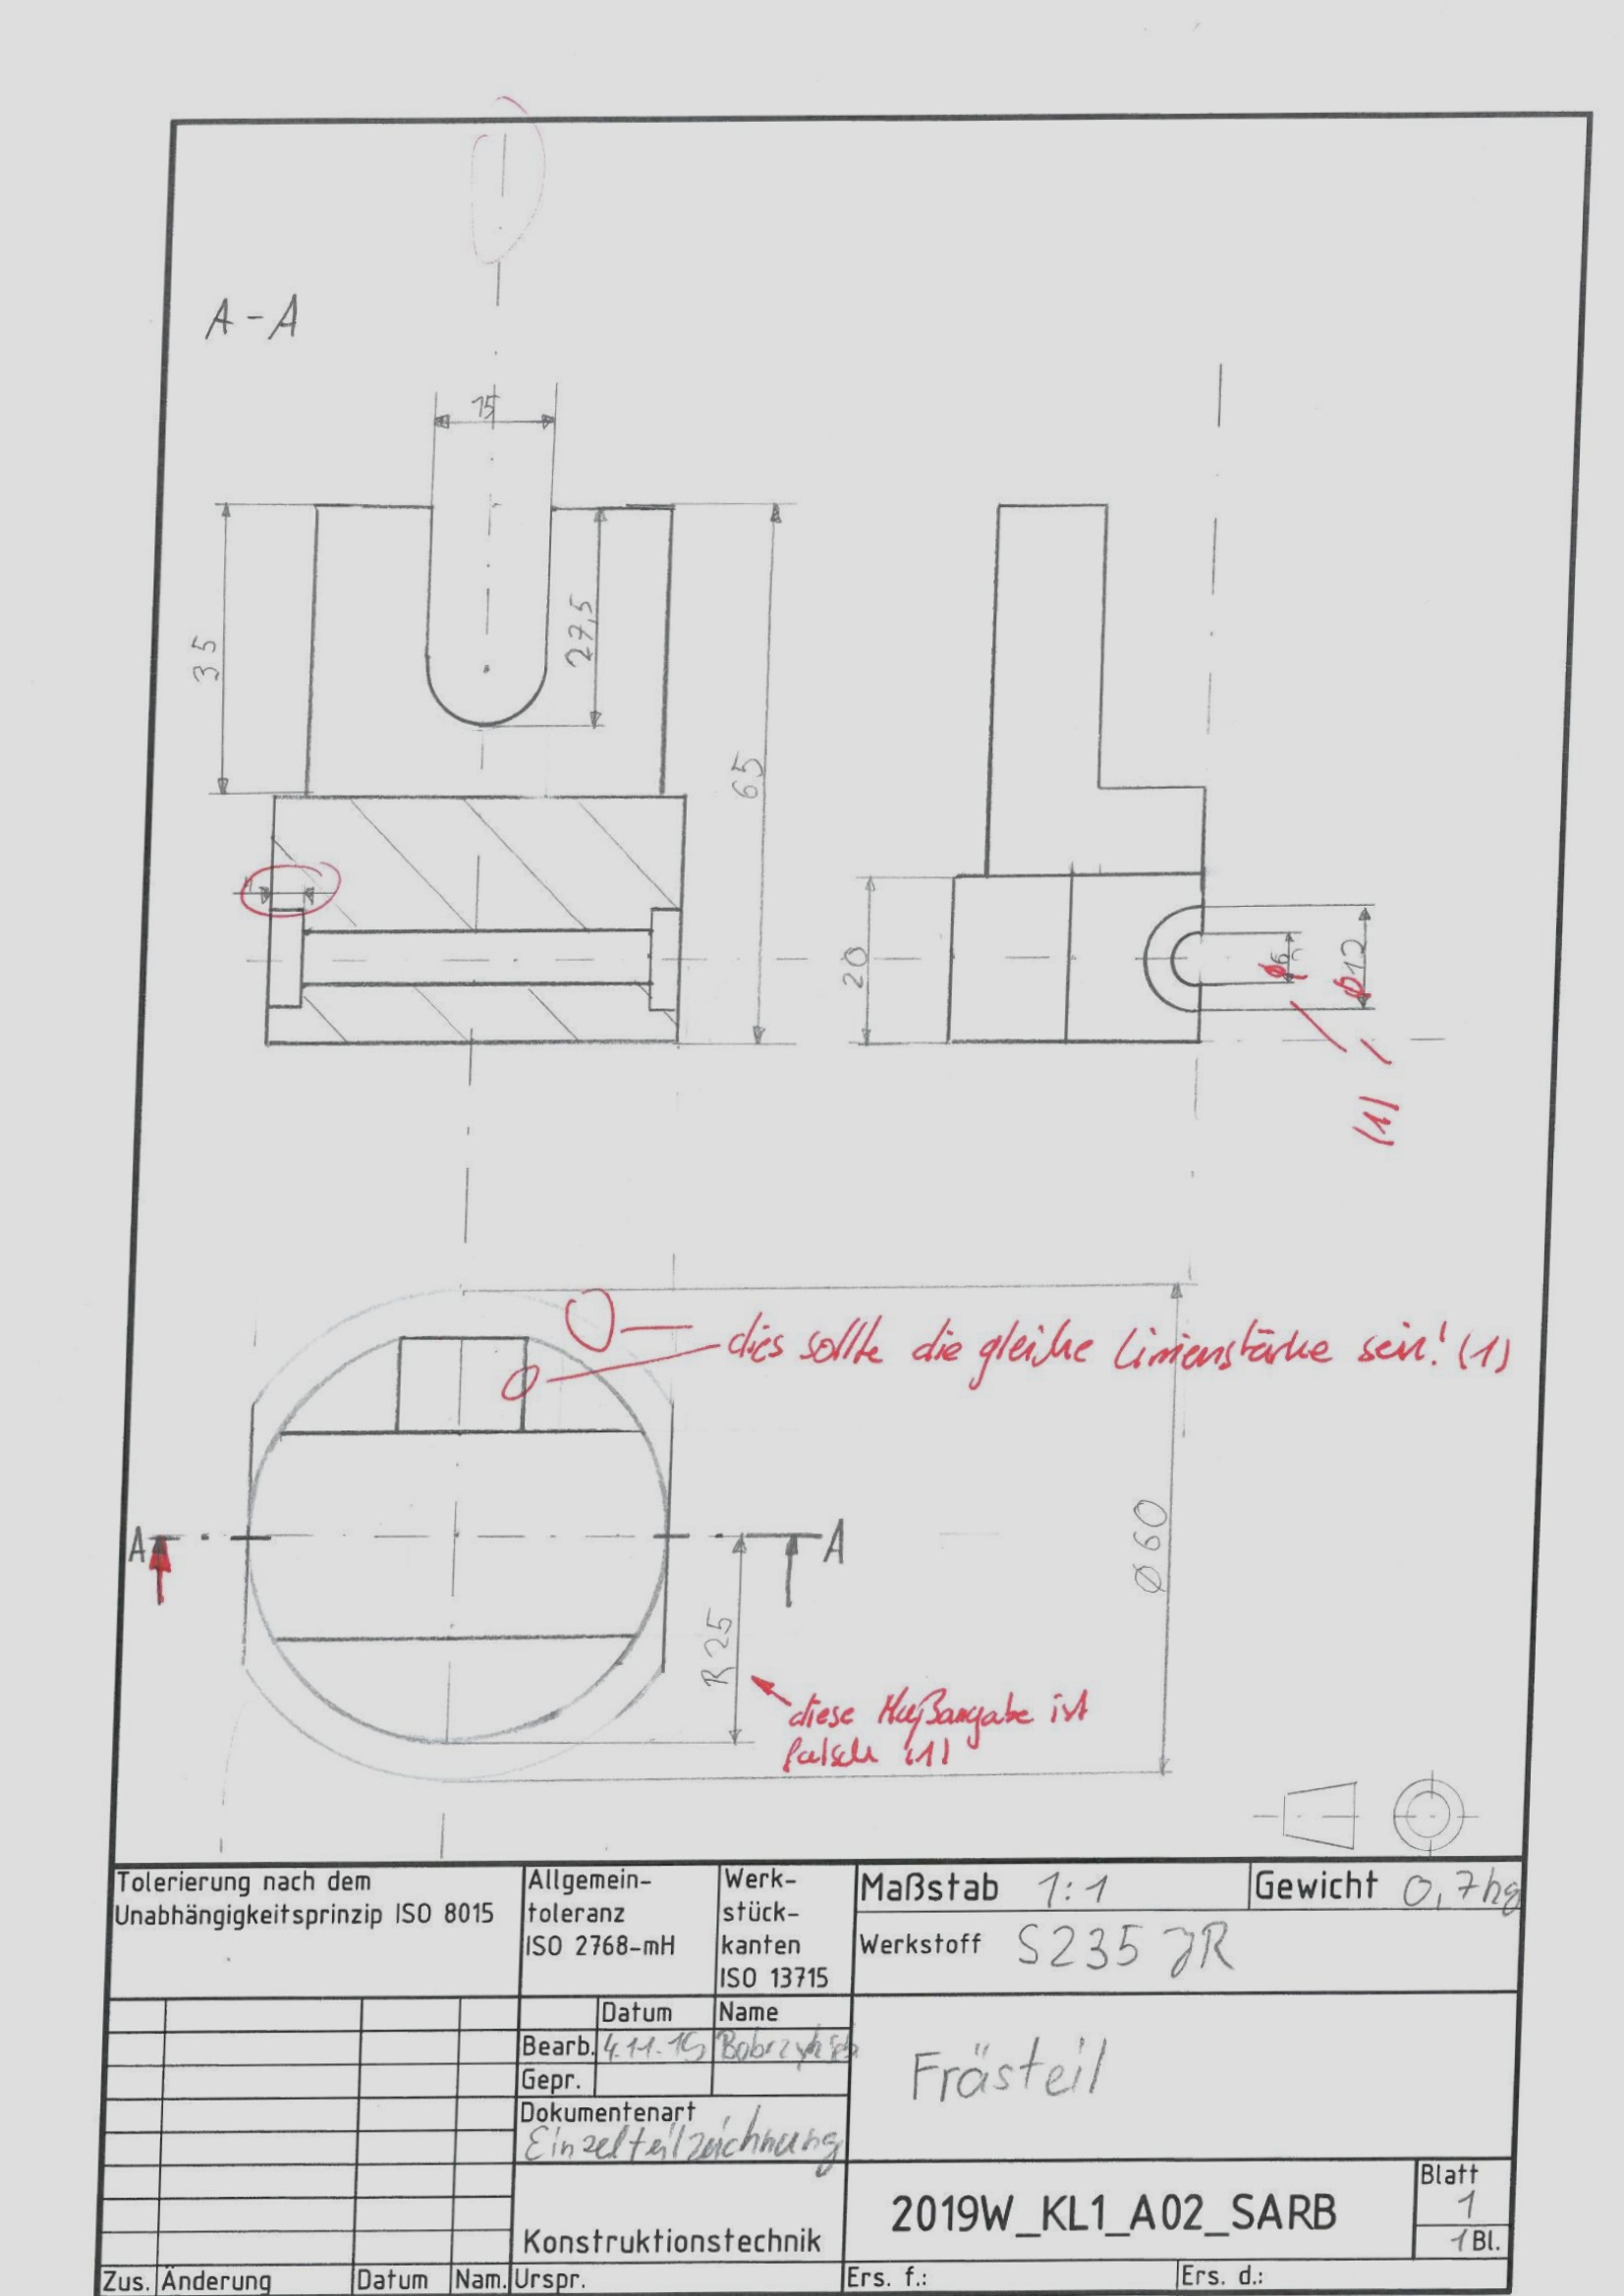 A-A
15
35
27,5
65
20
6
ϕ
12
ϕ
(1)
dies sollte die gleiche Linienstärke sein! (1)
A
A
R25
Ø60
diese Maßangabe ist
falsch (1)
Tolerierung nach dem
Unabhängigkeitsprinzip ISO 8015
Allgemein-
toleranz
ISO 2768-mH
Werk-
stück-
kanten
ISO 13715
Maßstab 1:1
Gewicht 0,7kg
Werkstoff S235 JR
Datum Name
Bearb. 4.11.19
Gepr.
Dokumentenart
Einzelteilzeichnung
Frästeil
Konstruktionstechnik
2019W_KL1_A02_SARB
Blatt
1
1 Bl.
Zus. Änderung Datum Nam. Urspr. Ers. f.: Ers. d.: